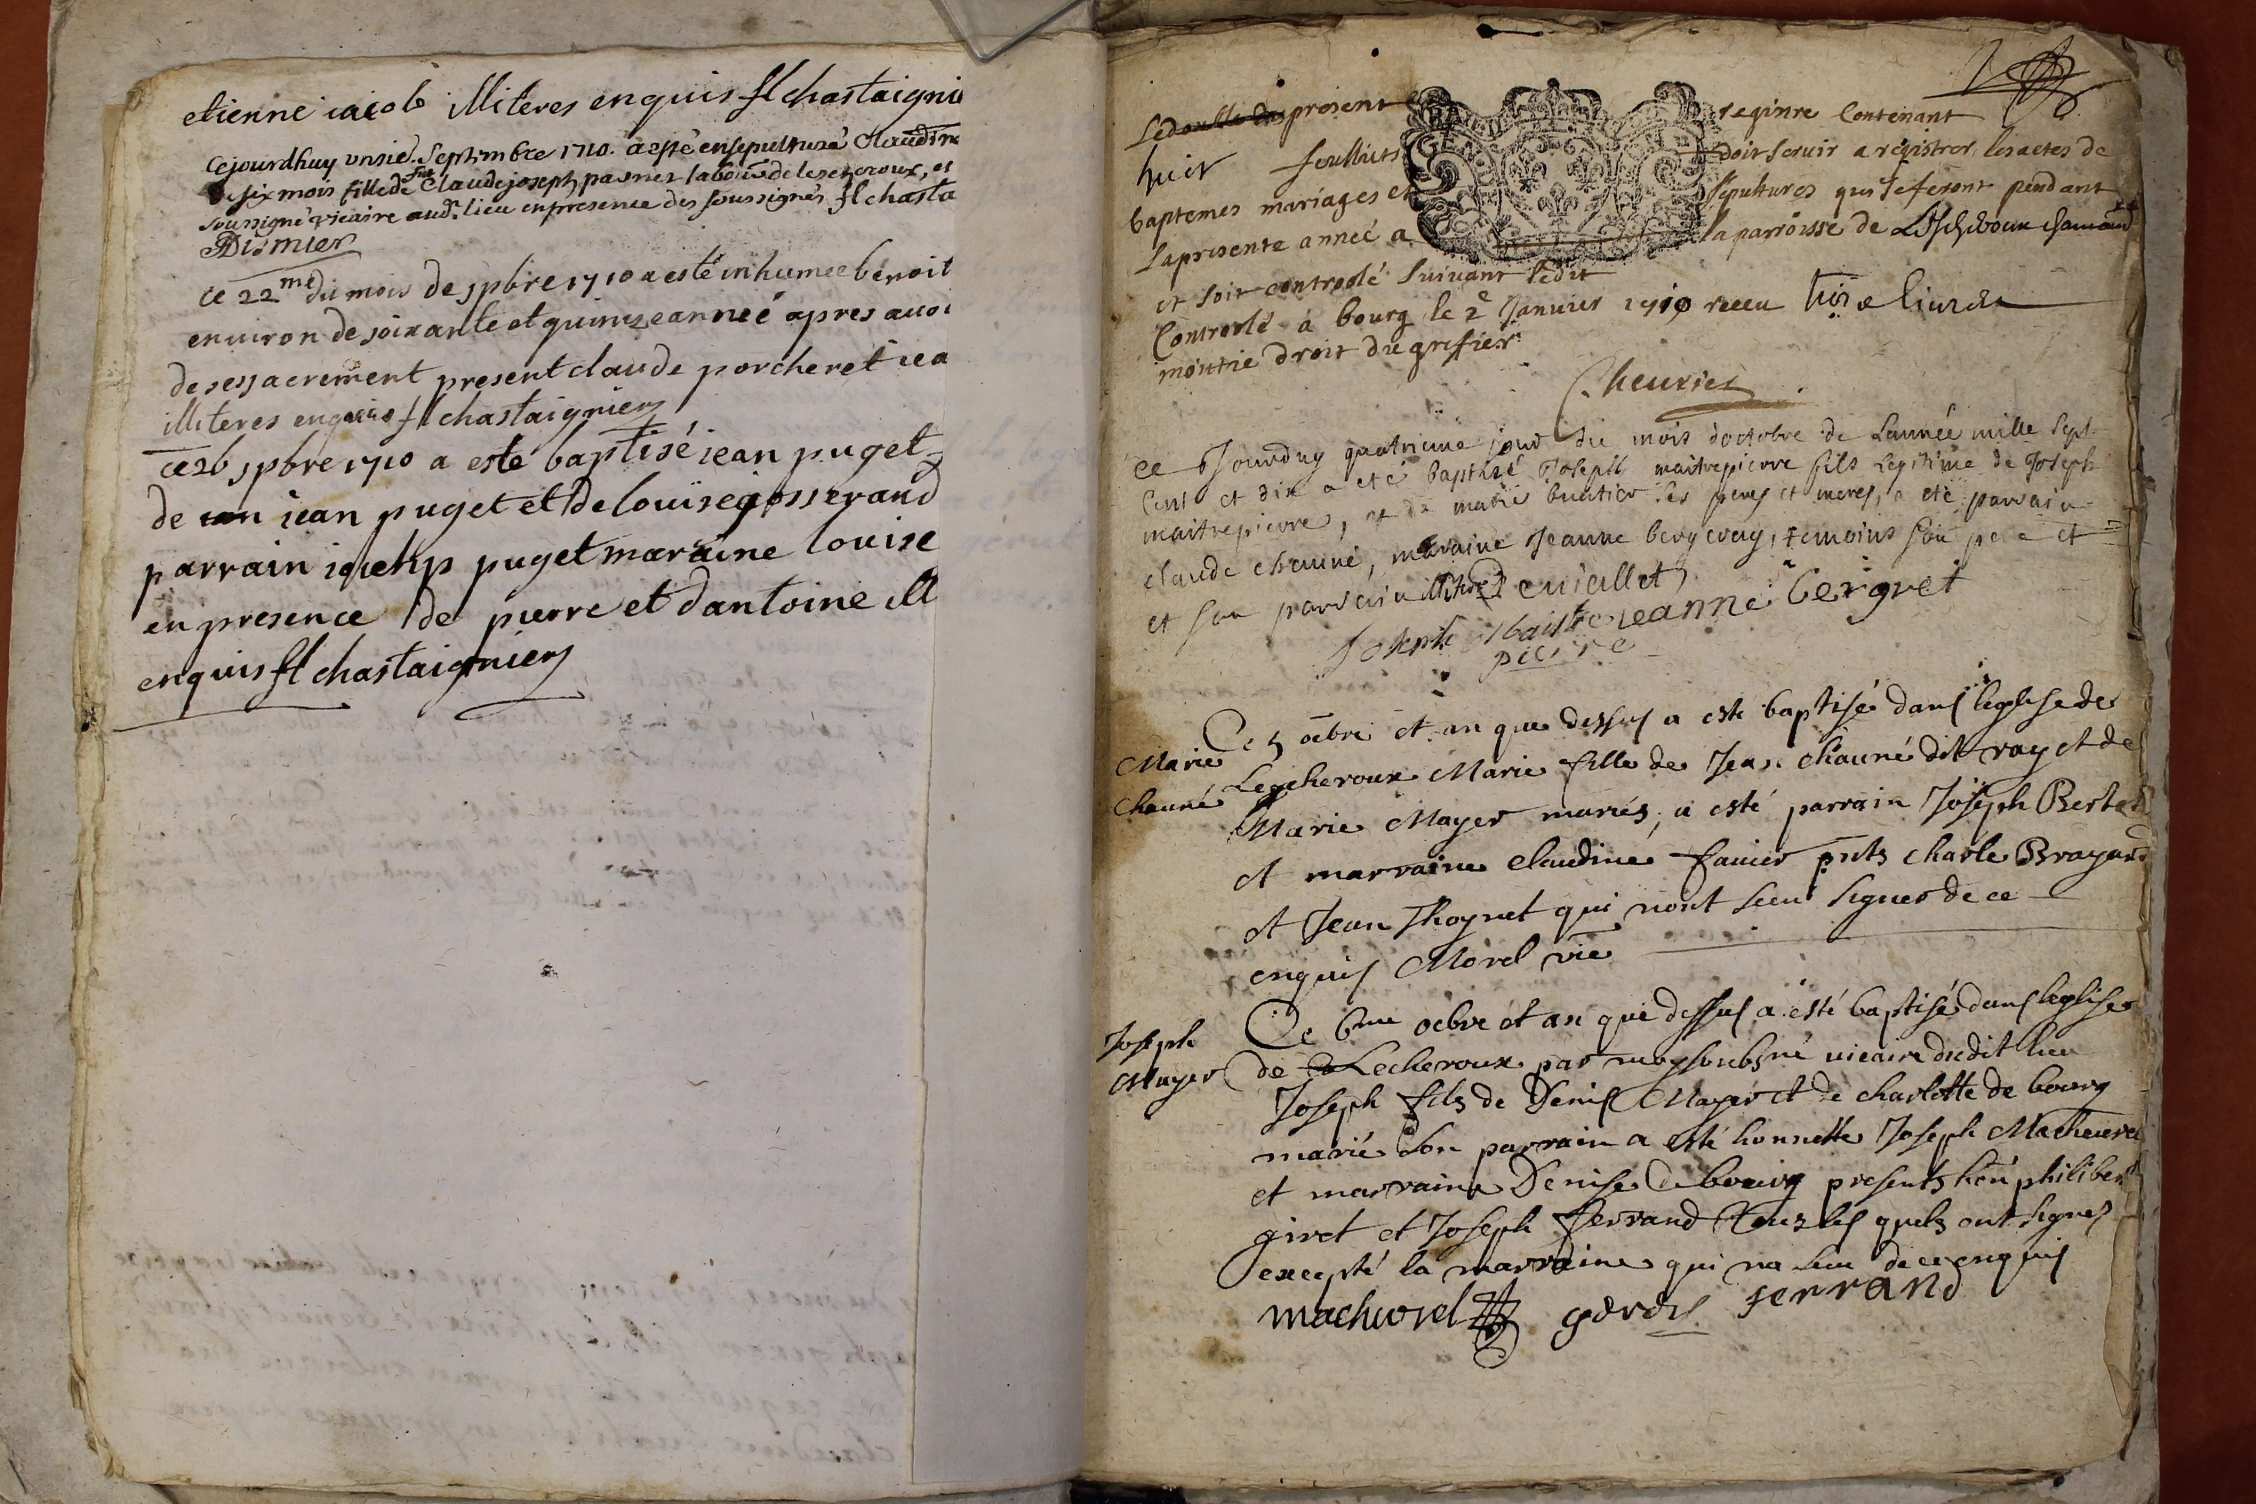 etienne iacob illiteres enquis fl chastaignie
Cejourdhuy unsie. Septembre 1710. a esté ensepulturé Claudine
de six mois fille de Claude joseph pasnez labour de lescheroux, et
soussigné vicaire aud. lieu en presence des soussignés fl chasta
Dismier
ce 22me du mois de 7pbre 1710 a esté inhumee benoit
environ de soixante et quinze année apres avoi
de ses sacrement present claude porcheret iea
illiteres enquis fl chastaignier
ce 26 7pbre 1710 a esté baptisé iean puget
de iean puget et de louise gosserand
parrain ioseph puget maraine louise
en presence de pierre et dantoine ill
enquis fl chastaignier
Le double du present registre Contenant
huit feullicts doit servir a registrer les actes de
baptemes mariages et sepultures qui se feront pendant
la presente année a la parroisse de
et soit controolé suivant ledit
Controolé a bourg le 2e Janvier 1710 receu trois livres
moittie droit du grefier
Cheurier
ce Jourduy quatrieme jour du mois doctobre de Lannée mille sept
Cent et dix a eté baptisé Joseph maitrepierre fils Legitime de Joseph
maitrepierre, et de marie buatier ses peres et meres, a eté parrain
claude chauné, maraine Jeanne bergeray, temoins son pere et
et son parrain
Joseph Maistre jeanne Bergret
pierre
Marie
Chauné
Ce 5 octbre et an que dessus a esté baptisé dans leglise de
Lescheroux Marie fille de Jean chauné dit ray et de
Marie Mayer mariés, a esté parrain Joseph Bertet
et marraine claudine fanier pnts charle Brayard
et Jean Thoynet qui nont sceu signer de ce
enquis Morel vic
Joseph
Mayer
Ce 6me octbre et an que dessus a esté baptisé dans leglise
de Lecheroux par moy soubsné vicaire dudit lieu
Joseph fils de Denis Mayer et de charlotte de bourg
marié son parrain a esté honnette Joseph Macheurel
et marraine Denise de bourg presents hon philibert
giret et Joseph ferrand tous les quels ont signes
excepté la marraine qui na sceu de ce enquis
macheurel ferrand